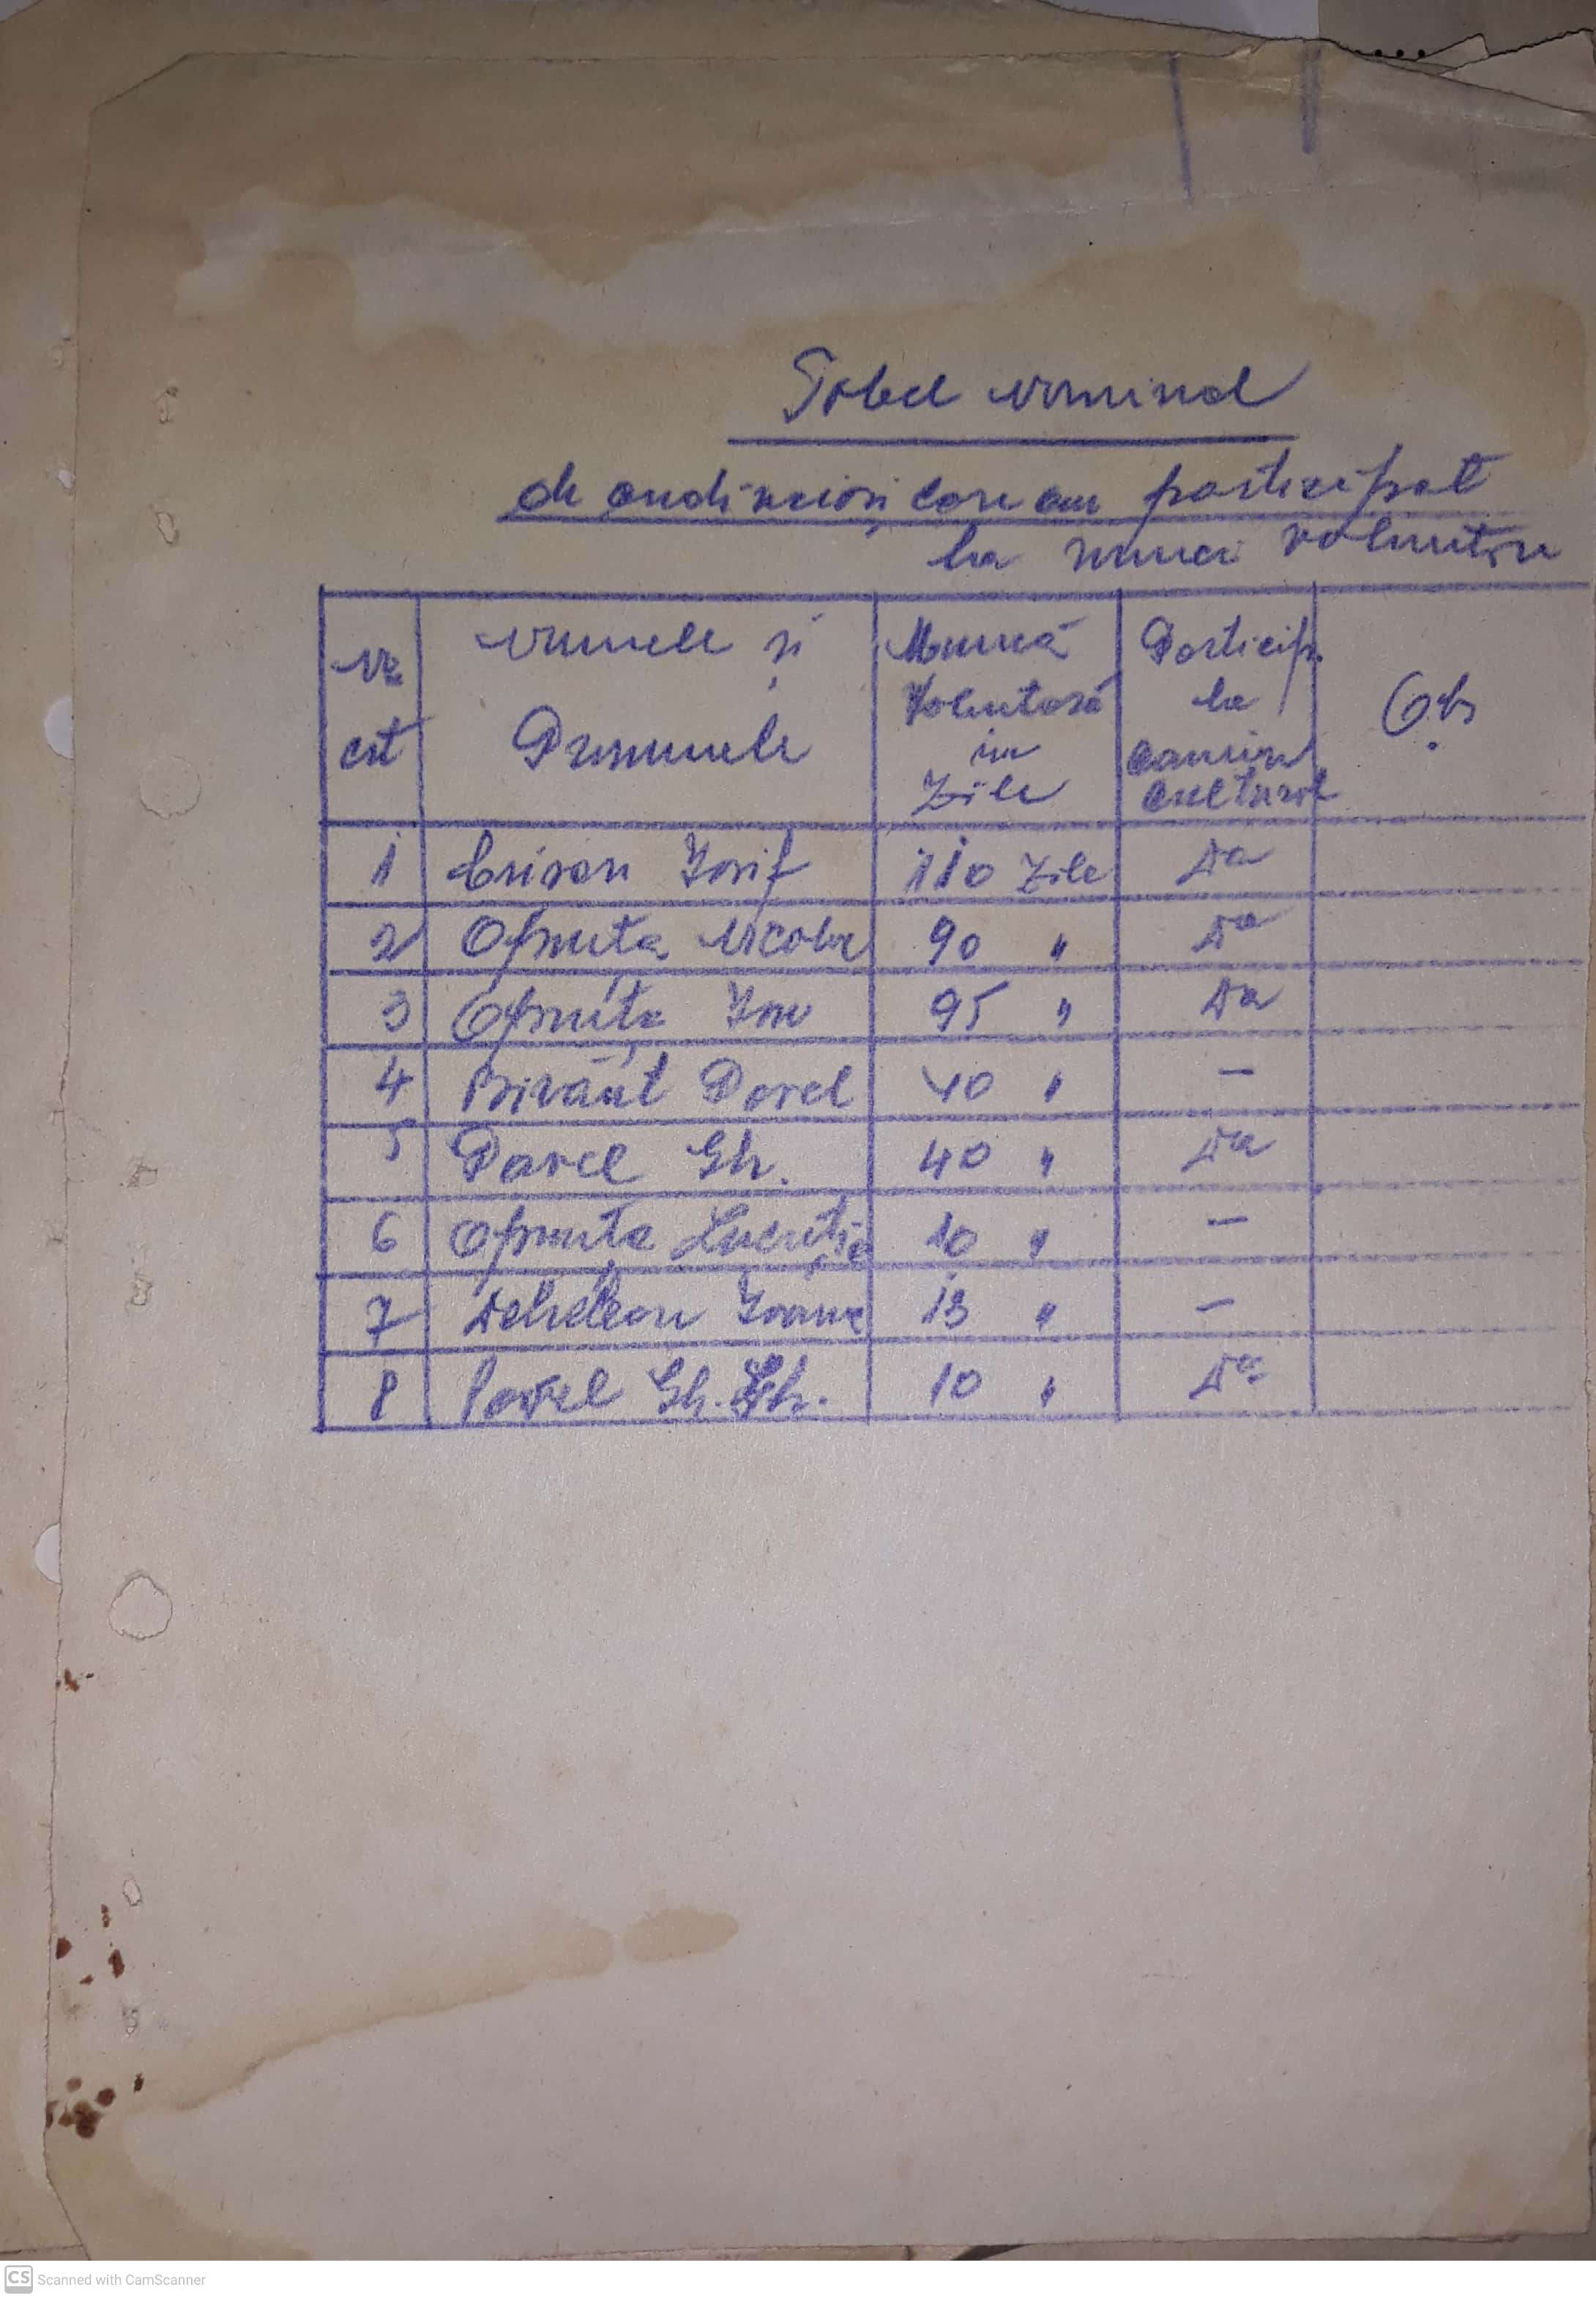 Tabel nominal
de credincioși care au participat
la munci voluntare
Nr. crt
Numele și Prenumele
Muncă Voluntară in Zile
Particip. la camin cultural
Obs.
1 Crisan Iosif 110 Zile Da
2 Opruța Nicolae 90 " Da
3 Opruța Ion 95 " Da
4 Birăuț Pavel 40 " —
5 Pavel Gh. 40 " Da
6 Opruța Lucreția 10 " —
7 Dehelean Ioana 13 " —
8 Pavel Gh. Gh. 10 " Da
CS Scanned with CamScanner